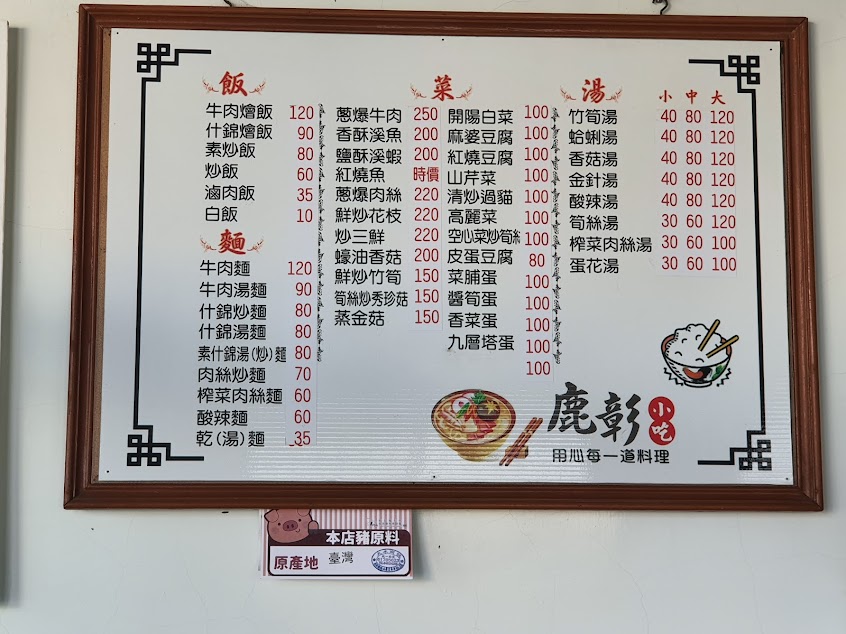 飯
牛肉燴飯 120
什錦燴飯 90
素炒飯 80
炒飯 60
滷肉飯 35
白飯 10
麵
牛肉麵 120
牛肉湯麵 90
什錦炒麵 80
什錦湯麵 80
素什錦湯(炒)麵 80
肉絲炒麵 70
榨菜肉絲麵 60
酸辣麵 60
乾(湯)麵 35
菜
蔥爆牛肉 250
香酥溪魚 200
鹽酥溪蝦 200
紅燒魚 時價
蔥爆肉絲 220
鮮炒花枝 220
炒三鮮 220
蠔油香菇 200
鮮炒竹筍 150
筍絲炒秀珍菇 150
蒸金菇 150
開陽白菜 100
麻婆豆腐 100
紅燒豆腐 100
山芹菜 100
清炒過貓 100
高麗菜 100
空心菜炒筍絲 100
皮蛋豆腐 80
菜脯蛋 100
醬筍蛋 100
香菜蛋 100
九層塔蛋 100
100
湯
小 中 大
竹筍湯 40 80 120
蛤蜊湯 40 80 120
香菇湯 40 80 120
金針湯 40 80 120
酸辣湯 40 80 120
筍絲湯 30 60 120
榨菜肉絲湯 30 60 100
蛋花湯 30 60 100
鹿彰
小吃
用心每一道料理
本店豬原料
原產地 臺灣